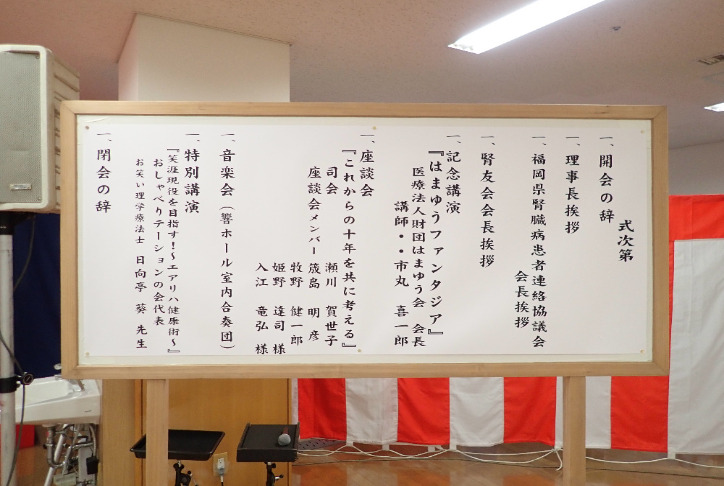 式次第
一、開会の辞
一、理事長挨拶
一、福岡県腎臓病患者連絡協議会
会長挨拶
一、腎友会会長挨拶
一、記念講演
『はまゆうファンタジア』
医療法人財団はまゆう会 会長
講師・・市丸 喜一郎
一、座談会
『これからの十年を共に考える』
司会 瀬川 賀世子
座談会メンバー 筬島 明彦
牧野 健一郎
姫野 達司 様
入江 竜弘 様
一、音楽会（響ホール室内合奏団）
一、特別講演
『笑涯現役を目指す！～エアリハ健康術～』
おしゃべりテーションの会代表
お笑い理学療法士 日向亭 葵 先生
一、閉会の辞